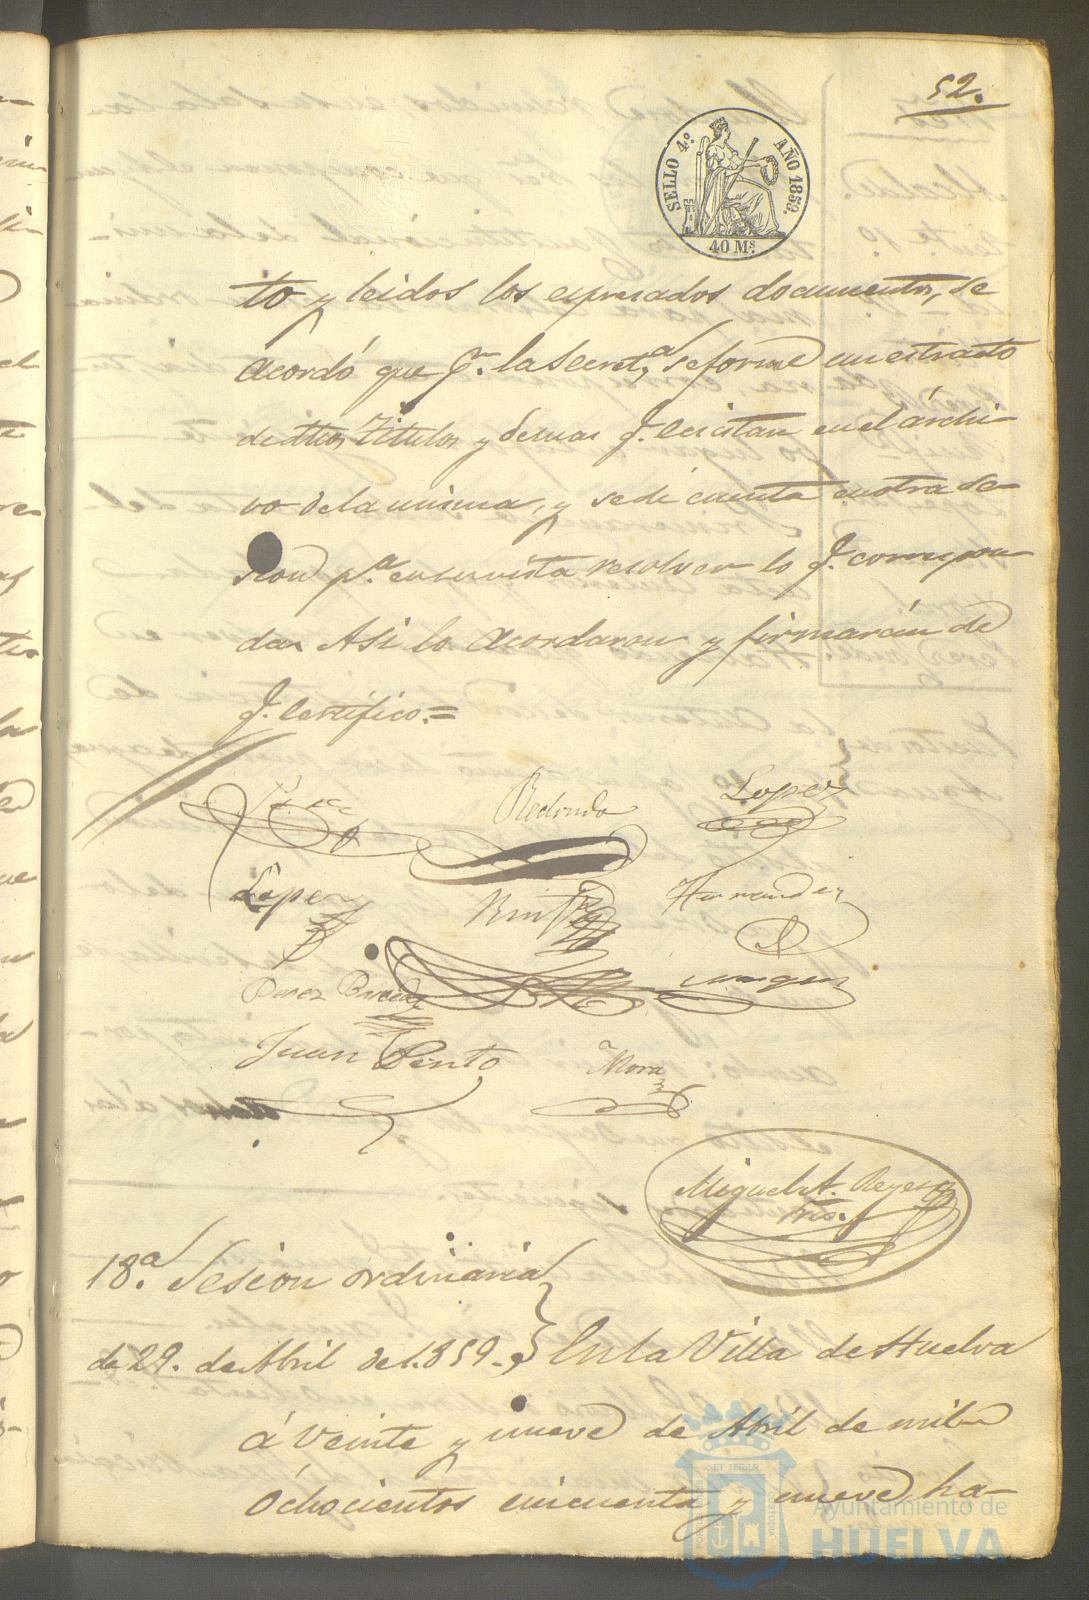 52.
SELLO 4º AÑO 1859.
40 Ms.
to y leidos los expresados documentos, se
acordó que pr. la Secreta. se forme un estracto
de dhos Titulos y demas q. ecsistan en el árchi-
vo de la misma, y se dé cuenta en otra se-
sion pa. en su vista resolver lo q. correspon-
da. Asi lo acordaron y firmarán de
q. certifico.=
Redondo
Lopez
Lopez
Hernandez
Perez
Juan Pento
Mora
Miguel A. Reyes
Srio.
18.a Sesion ordinaria
de 29. de Abril de 1.859.
En la Villa de Huelva
á veinte y nueve de Abril de mil
óchocientos cincuenta y nueve, ha-
Ayuntamiento de
HUELVA